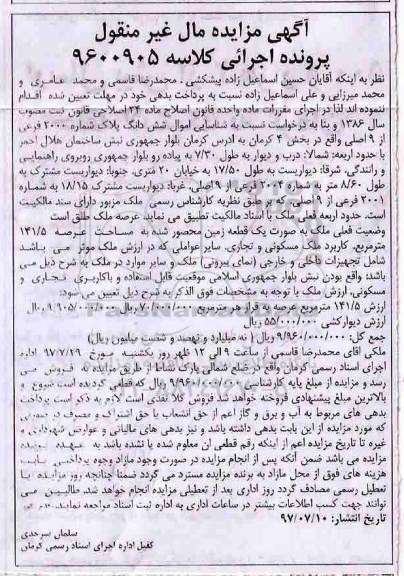 آگهی مزایده مال غیر منقول
پرونده اجرائی کلاسه ۹۶۰۰۹۰۵
نظر به اینکه آقایان حسین اسماعیل زاده پیشکشی، محمدرضا قاسمی و محمد عامری و
محمد میرزایی و علی اسماعیل زاده نسبت به پرداخت بدهی خود در مهلت تعیین شده اقدام
ننموده اند لذا در اجرای مقررات ماده واحده قانون اصلاح ماده ۳۴ اصلاحی قانون ثبت مصوب
سال ۱۳۸۶ و بنا به درخواست نسبت به شناسایی اموال شش دانگ پلاک شماره ۲۰۰۰ فرعی
از ۹ اصلی واقع در بخش ۴ کرمان به ادرس کرمان بلوار جمهوری نبش ساختمان هلال احمر
با حدود اربعه: شمالا: درب و دیوار به طول ۷/۳۰ به پیاده رو بلوار جمهوری روبروی راهنمایی
و رانندگی، شرقا: دیواریست به طول ۱۷/۵۰ به خیابان ۲۰ متری، جنوبا: دیواریست مشترک به
طول ۸/۶۰ متر به شماره فرعی از ۹ اصلی، غربا: دیواریست مشترک ۱۸/۱۵ به شماره
۲۰۰۱ فرعی از ۹ اصلی که طبق نظریه کارشناس رسمی ملک مزبور دارای سند مالکیت
است، حدود اربعه فعلی ملک با اسناد مالکیت تطبیق می نماید. عرصه ملک طلق است
وضعیت فعلی ملک به صورت یک قطعه زمین محصور شده به مساحت عرصه ۱۴۱/۵
مترمربع، کاربرد ملک مسکونی و تجاری، سایر عواملی که در ارزش ملک موثر می باشد
شامل تجهیزات داخلی و خارجی (نمای بیرونی) ملک و سایر موارد در ملک به شرح ذیل می
باشد: واقع بودن نبش بلوار جمهوری اسلامی موقعیت قابل استفاده و باکاربری تجاری و
مسکونی، ارزش ملک با توجه به مشخصات فوق الذکر به شرح ذیل تعیین می شود:
ارزش ۱۴۱/۵ مترمربع عرصه از قرار هر مترمربع ۷۰/۰۰۰/۰۰۰ ریال ۹/۹۰۵/۰۰۰/۰۰۰ ریال
ارزش دیوارکشی ۵۵/۰۰۰/۰۰۰ ریال
جمع کل: ۹/۹۶۰/۰۰۰/۰۰۰ ریال ( نه میلیارد و نهصد و شصت میلیون ریال)
ملکی آقای محمدرضا قاسمی از ساعت ۹ الی ۱۲ ظهر روز یکشنبه مورخ ۹۷/۷/۲۹ اداره
اجرای اسناد رسمی کرمان واقع در ضلع شمالی پارک نشاط از طریق مزایده به فروش می
رسد و مزایده از مبلغ پایه کارشناسی ۹/۹۶۰/۰۰۰/۰۰۰ ریال که قطعی گردیده است شروع و
بالاترین مبلغ پیشنهادی فروخته خواهد شد فروش کلا نقدی است لازم به ذکر است پرداخت
بدهی های مربوط به آب و برق و گاز اعم از حق انشعاب یا حق اشتراک و مصرف در صورتی
که مورد مزایده از این بابت بدهی داشته باشد و نیز بدهی های مالیاتی و عوارض شهرداری و
غیره تا تاریخ مزایده اعم از اینکه رقم قطعی آن معلوم شده یا نشده باشد به عهده برنده
مزایده می باشد ضمن آنکه پس از انجام مزایده در صورت وجود مازاد وجوه پرداختی بابت
هزینه های فوق از محل مازاد به برنده مزایده مسترد می گردد ضمنا چنانچه روز مزایده با
تعطیل رسمی مصادف گردد روز اداری بعد از تعطیلی مزایده انجام خواهد شد. طالبین می
توانند جهت کسب اطلاعات بیشتر در ساعات اداری به اداره ثبت اسناد مراجعه نمایند.
تاریخ انتشار: ۹۷/۰۷/۱۰
سلمان سرحدی
کفیل اداره اجرای اسناد رسمی کرمان